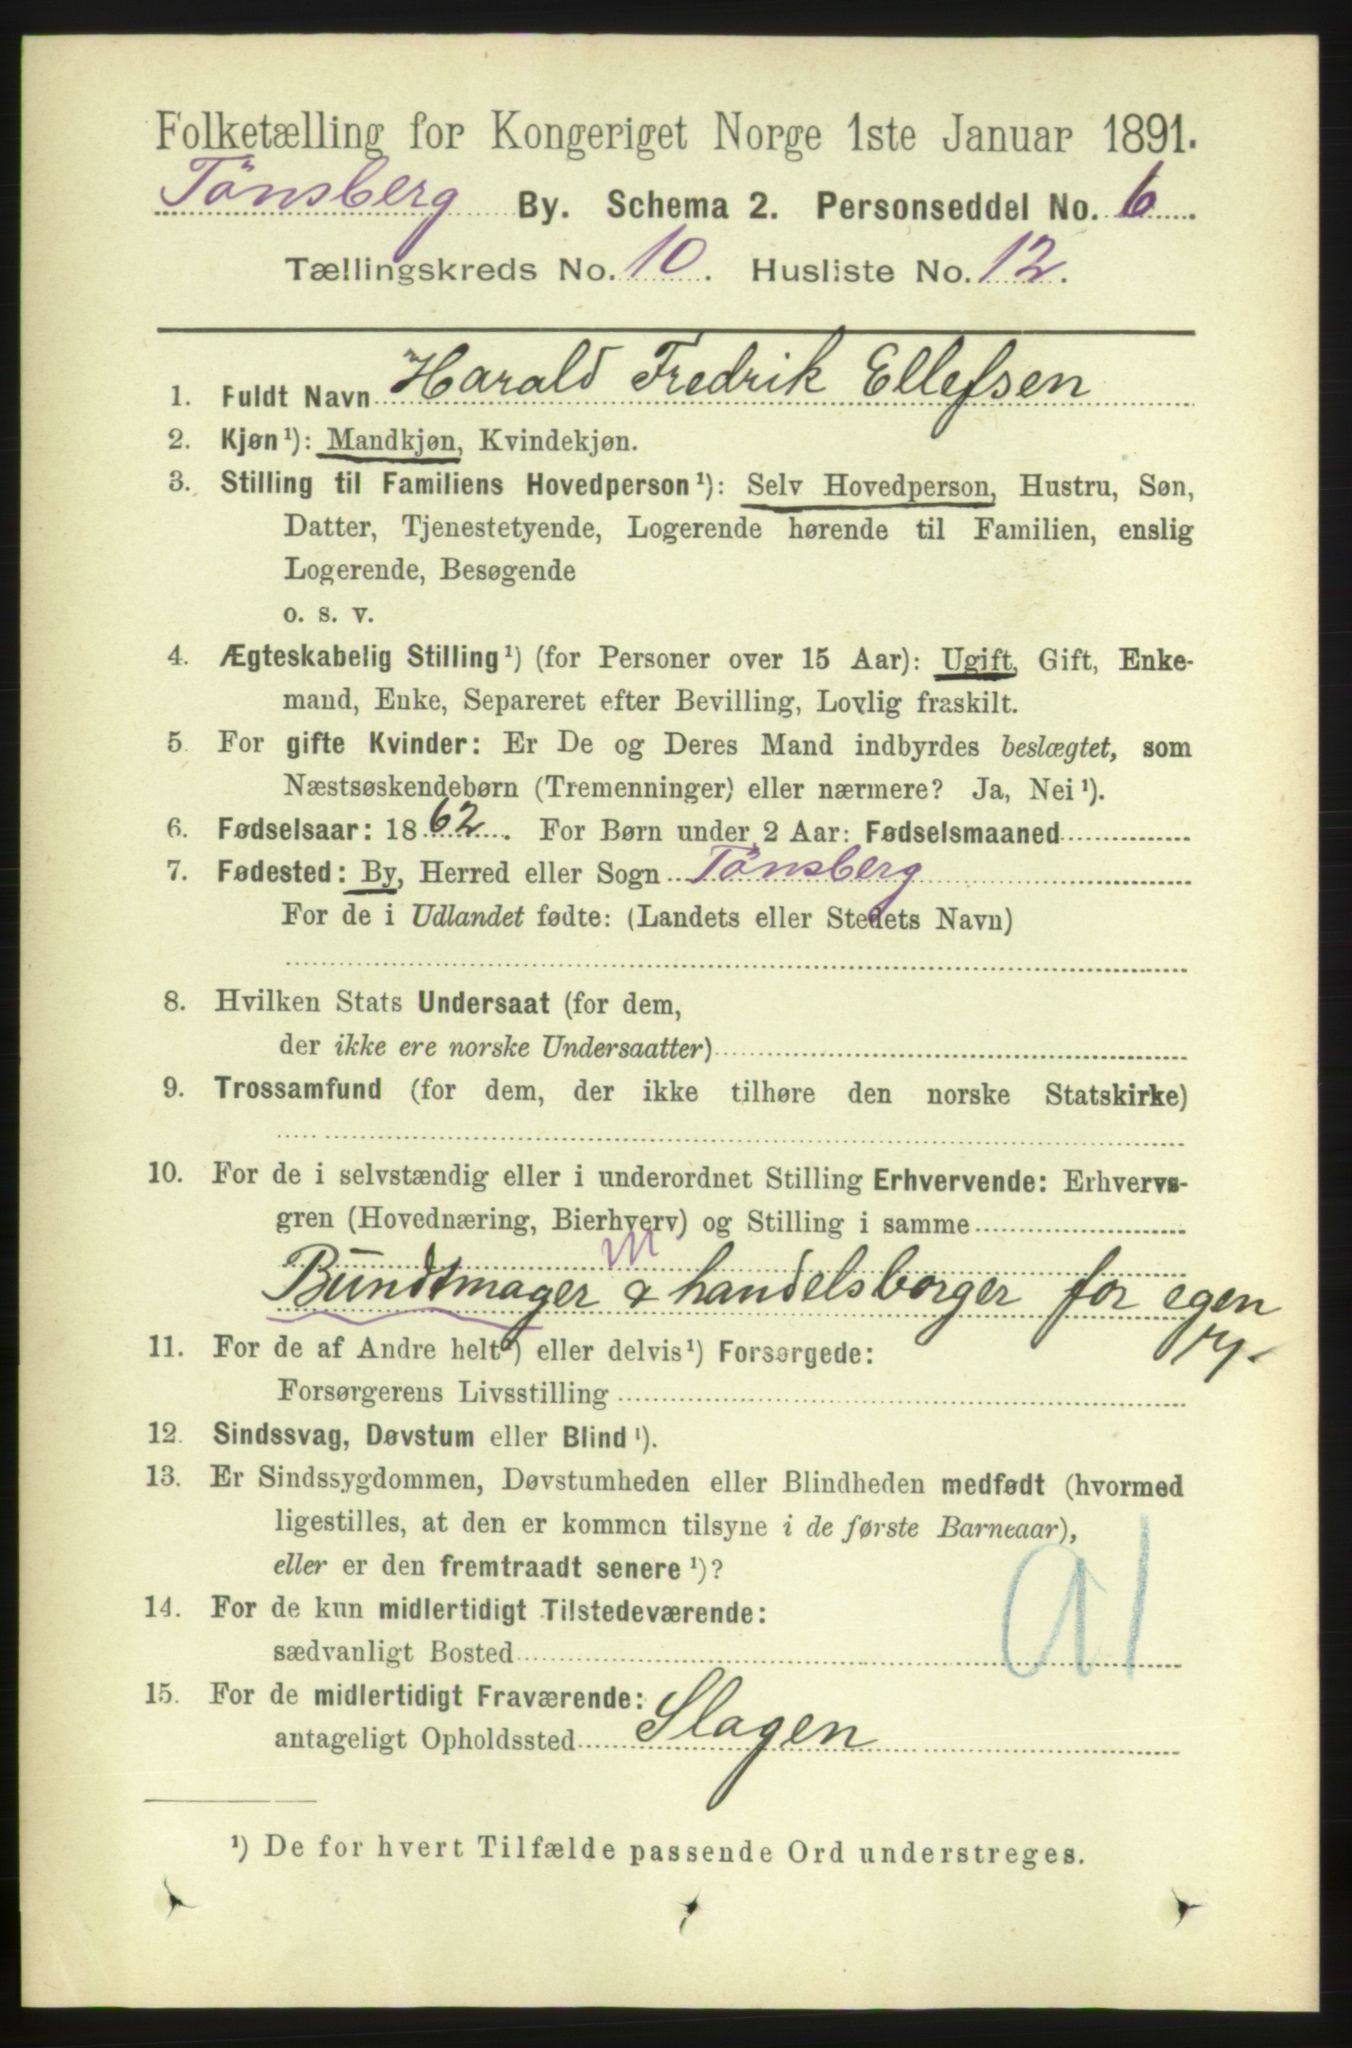 Folketælling for Kongeriget Norge 1ste Januar 1891.
Tönsberg By. Schema 2. Personseddel No. 6.
Tællingskreds No. 10. Husliste No. 12.
1. Fuldt Navn Harald Fredrik Ellefsen
2. Kjøn ¹): Mandkjøn, Kvindekjøn.
3. Stilling til Familiens Hovedperson ¹): Selv Hovedperson, Hustru, Søn,
Datter, Tjenestetyende, Logerende hørende til Familien, enslig
Logerende, Besøgende
o. s. v.
4. Ægteskabelig Stilling ¹) (for Personer over 15 Aar): Ugift, Gift, Enke-
mand, Enke, Separeret efter Bevilling, Lovlig fraskilt.
5. For gifte Kvinder: Er De og Deres Mand indbyrdes beslægtet, som
Næstsøskendebørn (Tremenninger) eller nærmere? Ja, Nei ¹).
6. Fødselsaar: 1862. For Børn under 2 Aar: Fødselsmaaned
7. Fødested: By, Herred eller Sogn Tönsberg
For de i Udlandet fødte: (Landets eller Stedets Navn)
8. Hvilken Stats Undersaat (for dem,
der ikke ere norske Undersaatter)
9. Trossamfund (for dem, der ikke tilhøre den norske Statskirke)
10. For de i selvstændig eller i underordnet Stilling Erhvervende: Erhvervs-
gren (Hovednæring, Bierhverv) og Stilling i samme
m
Bundtmager & handelsborger for egen
11. For de af Andre helt ¹) eller delvis ¹) Forsørgede:
Forsørgerens Livsstilling
12. Sindssvag, Døvstum eller Blind ¹).
13. Er Sindssygdommen, Døvstumheden eller Blindheden medfødt (hvormed
ligestilles, at den er kommen tilsyne i de første Barneaar),
eller er den fremtraadt senere ¹)?
14. For de kun midlertidigt Tilstedeværende:
sædvanligt Bosted
15. For de midlertidigt Fraværende:
antageligt Opholdssted Slagen
¹) De for hvert Tilfælde passende Ord understreges.